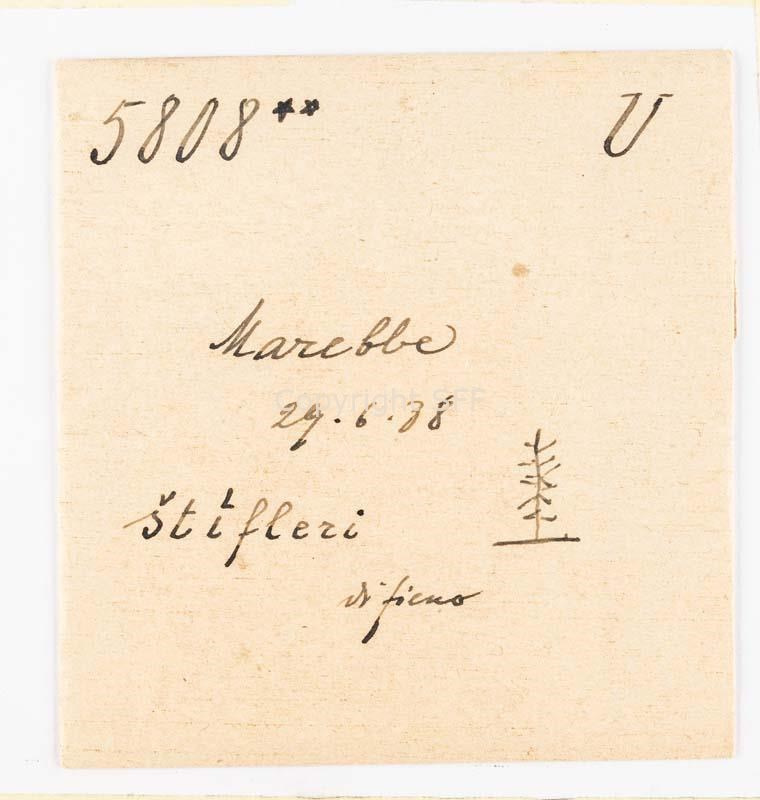 5808** U
Marebbe
Copyright SFF
29.6.38
štifleri
di fieno